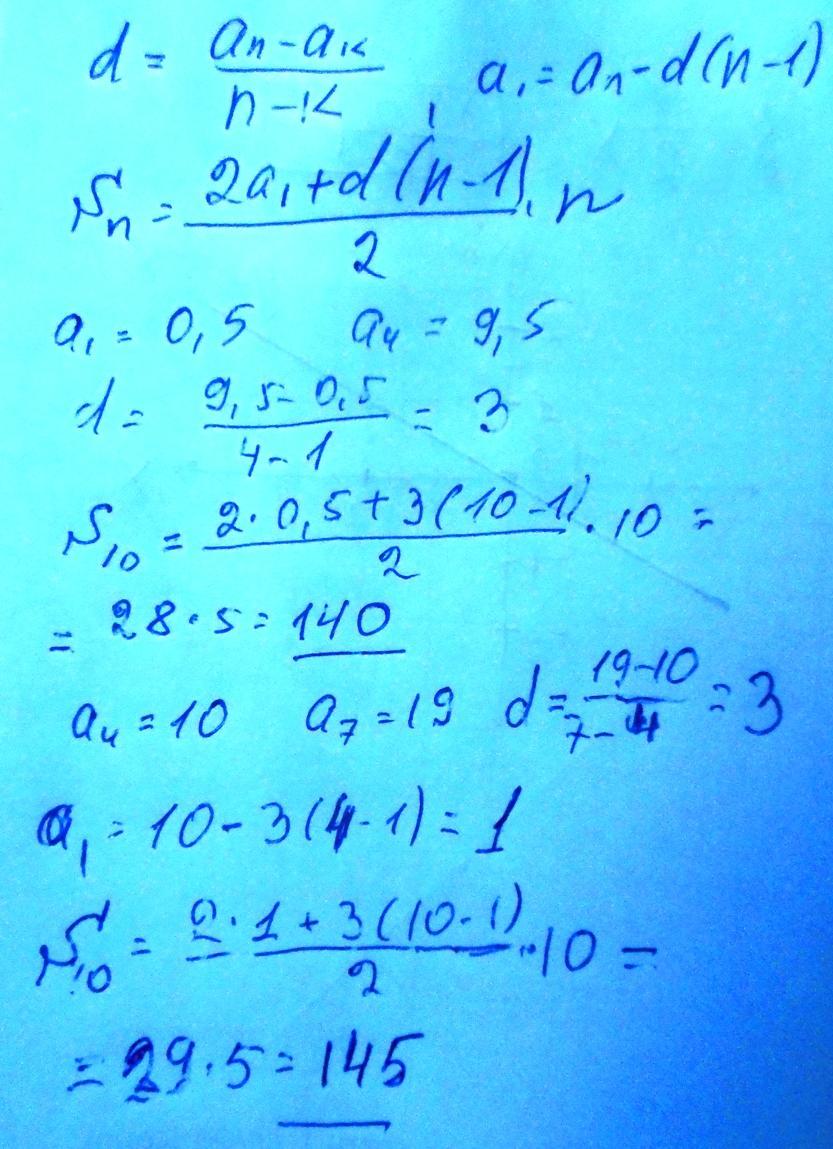 d = (aₙ - aₖ)/(n - k), a₁ = aₙ - d(n-1)
Sₙ = (2a₁ + d(n-1))/2 · n
a₁ = 0,5 a₄ = 9,5
d = (9,5 - 0,5)/(4 - 1) = 3
S₁₀ = (2·0,5 + 3(10-1))/2 · 10 =
= 28·5 = 140
a₄ = 10 a₇ = 19 d = (19-10)/(7-4) = 3
a₁ = 10 - 3(4-1) = 1
S₁₀ = (2·1 + 3(10-1))/2 · 10 =
= 29·5 = 145